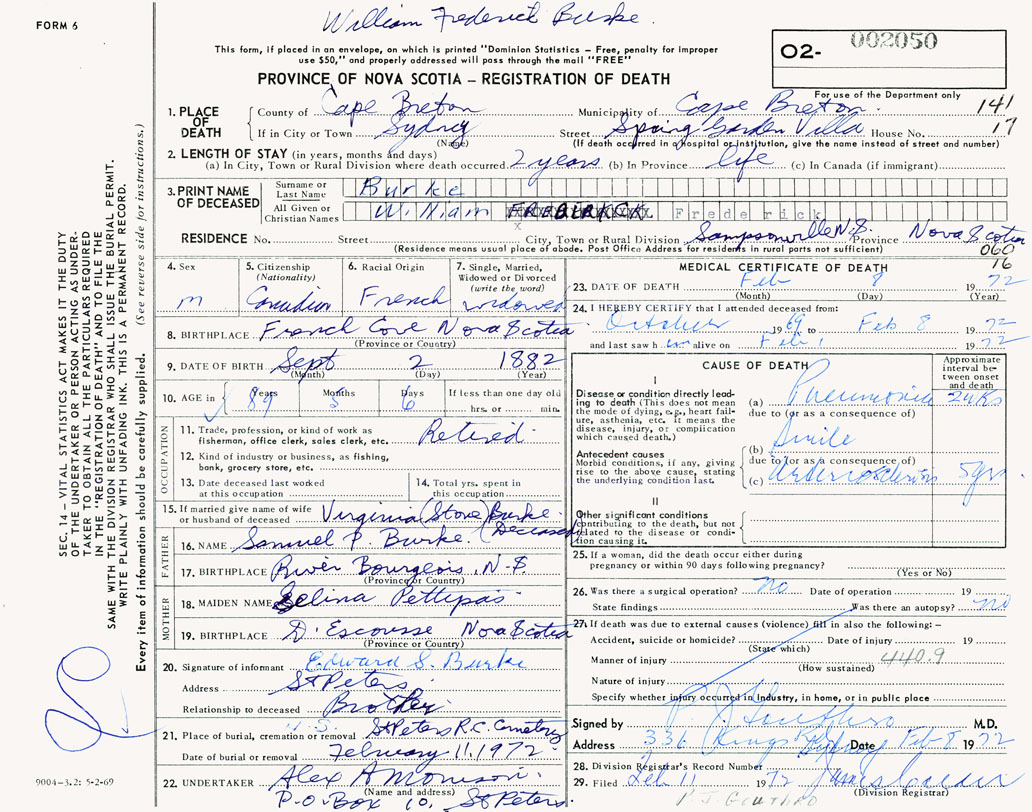 William Frederick Burke.
FORM 6
This form, if placed in an envelope, on which is printed "Dominion Statistics – Free, penalty for improper
use $50," and properly addressed will pass through the mail "FREE"
PROVINCE OF NOVA SCOTIA – REGISTRATION OF DEATH
O2- 002050
For use of the Department only
1. PLACE OF DEATH County of Cape Breton Municipality of Cape Breton. 141
If in City or Town Sydney (Name) Street Spring Garden Villa House No. 17
(If death occurred in a hospital or institution, give the name instead of street and number)
2. LENGTH OF STAY (in years, months and days)
(a) In City, Town or Rural Division where death occurred 2 years (b) In Province life (c) In Canada (if immigrant)
3. PRINT NAME OF DECEASED Surname or Last Name Burke
All Given or Christian Names William Frederick
RESIDENCE No. Street City, Town or Rural Division Sampsonville N.S. Province Nova Scotia
(Residence means usual place of abode. Post Office Address for residents in rural parts not sufficient) 060
76
4. Sex m
5. Citizenship (Nationality) Canadian
6. Racial Origin French
7. Single, Married, Widowed or Divorced (write the word) widowed
8. BIRTHPLACE French Cove Nova Scotia
(Province or Country)
9. DATE OF BIRTH Sept 2 1882
(Month) (Day) (Year)
10. AGE in Years 89 Months 5 Days 6 If less than one day old
hrs. or min.
OCCUPATION
11. Trade, profession, or kind of work as
fisherman, office clerk, sales clerk, etc. Retired.
12. Kind of industry or business, as fishing,
bank, grocery store, etc.
13. Date deceased last worked
at this occupation
14. Total yrs. spent in
this occupation
15. If married give name of wife
or husband of deceased Virginia (Stone) Burke.
(Deceased)
FATHER
16. NAME Samuel P. Burke.
17. BIRTHPLACE River Bourgeois, N.S.
(Province or Country)
MOTHER
18. MAIDEN NAME Selina Pettipas
19. BIRTHPLACE D'Escousse Nova Scotia
(Province or Country)
20. Signature of informant Edward S. Burke
Address St Peters
Relationship to deceased Brother.
21. Place of burial, cremation or removal St Peters R.C. Cemetery
Date of burial or removal February 11, 1972.
22. UNDERTAKER Alex A Morrison.
(Name and address)
P.O. Box 10, St Peters.
MEDICAL CERTIFICATE OF DEATH
23. DATE OF DEATH Feb 8 1972
(Month) (Day) (Year)
24. I HEREBY CERTIFY that I attended deceased from:
October 1969 to Feb 8 1972
and last saw him alive on Feb 1 1972
CAUSE OF DEATH
Approximate interval between onset and death
I
Disease or condition directly leading to death (This does not mean
the mode of dying, e.g., heart failure, asthenia, etc. It means the
disease, injury, or complication
which caused death.)
(a) Pneumonia 2wks
due to (or as a consequence of)
Antecedent causes
Morbid conditions, if any, giving
rise to the above cause, stating
the underlying condition last.
(b) Senile
due to (or as a consequence of)
(c) Arteriosclerosis 5yrs
II
Other significant conditions
contributing to the death, but not
related to the disease or condition causing it.
25. If a woman, did the death occur either during
pregnancy or within 90 days following pregnancy?
(Yes or No)
26. Was there a surgical operation? no Date of operation 19
State findings Was there an autopsy? no
27. If death was due to external causes (violence) fill in also the following: –
Accident, suicide or homicide? Date of injury 19
(State which)
Manner of injury 440.9
(How sustained)
Nature of injury
Specify whether injury occurred in Industry, in home, or in public place
Signed by P. J. Gouthro M.D.
Address 336 Kings Rd Sydney Date Feb 8 1972
28. Division Registrar's Record Number
29. Filed Feb 11 1972
(Division Registrar)
P. J. Gouthro
SEC. 14 – VITAL STATISTICS ACT MAKES IT THE DUTY
OF THE UNDERTAKER OR PERSON ACTING AS UNDERTAKER TO OBTAIN ALL THE PARTICULARS REQUIRED
IN THE "REGISTRATION OF DEATH" AND TO FILE THE
SAME WITH THE DIVISION REGISTRAR WHO SHALL ISSUE THE BURIAL PERMIT.
WRITE PLAINLY WITH UNFADING INK. THIS IS A PERMANENT RECORD.
Every item of information should be carefully supplied. (See reverse side for instructions.)
9004-3.2: 5-2-69